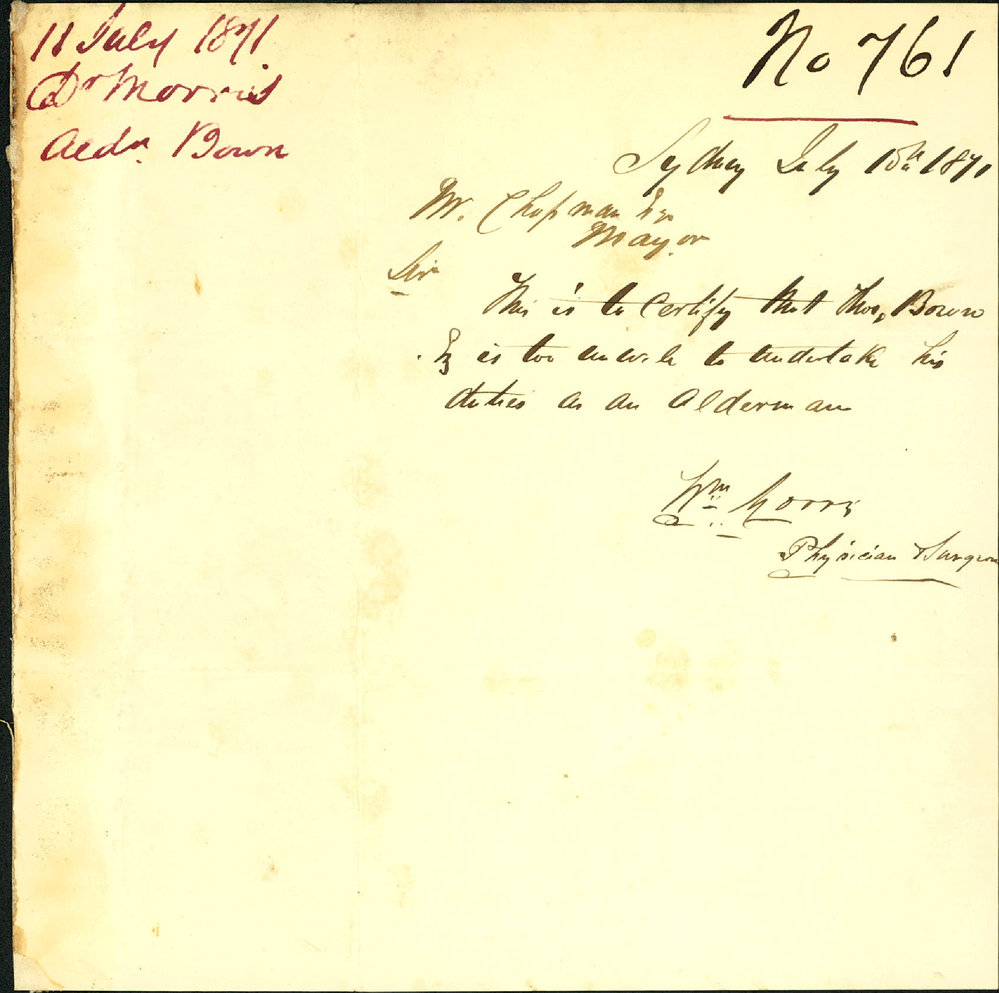 11 July 1871.
Dr Morris
Aldn. Bown
No 761
Sydney July 10th 1871
M. Chapman Esq
Mayor
Sir
This is to certify that Thos, Bown
Esq is too unwell to undertake his
duties as an Alderman
Wm Morris
Physician & Surgeon